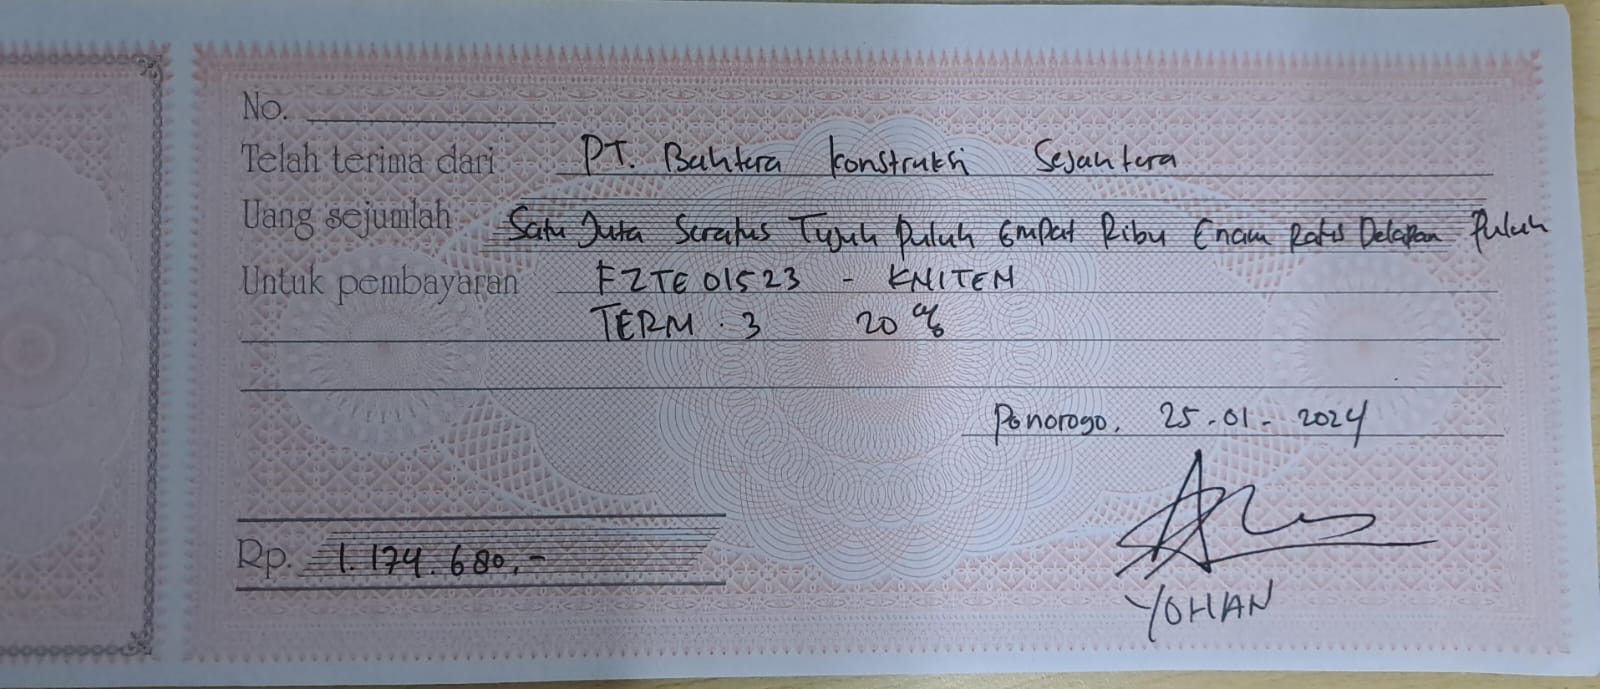 No.
Telah terima dari PT. Bahtera Konstruksi Sejahtera
Uang sejumlah Satu Juta Seratus Tujuh Puluh Empat Ribu Enam Ratus Delapan Puluh
Untuk pembayaran FZTE01523 - KNITEM
TERM . 3 20 %
Ponorogo, 25-01-2024
Rp. 1.174.680,-
YOHAN